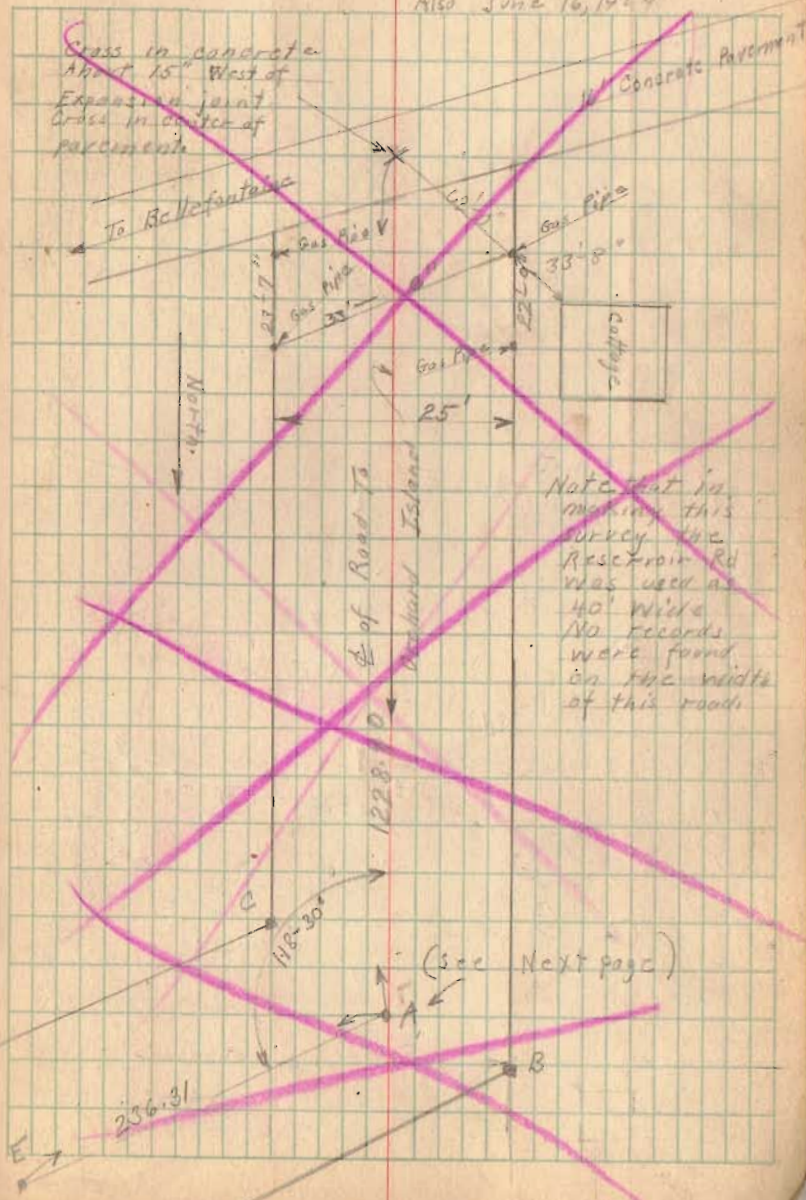 Also June 16, 19
Cross in concrete
About 15" West of
Expansion joint
Cross in center of
pavement.
Concrete Pavement
To Bellefontaine
Gas Pipe
Gas Pipe
33'-8"
23'-7"
Gas Pipe
33'
22'-6"
Cottage
Gas Pipe
North
25'
℄ of Road To
Orchard Island
Note that in
making this
survey the
Reservoir Rd
was used as
40' Wide
No records
were found
on the width
of this road.
1228.90
C
118-30'
(see Next page)
A
B
236.31
E